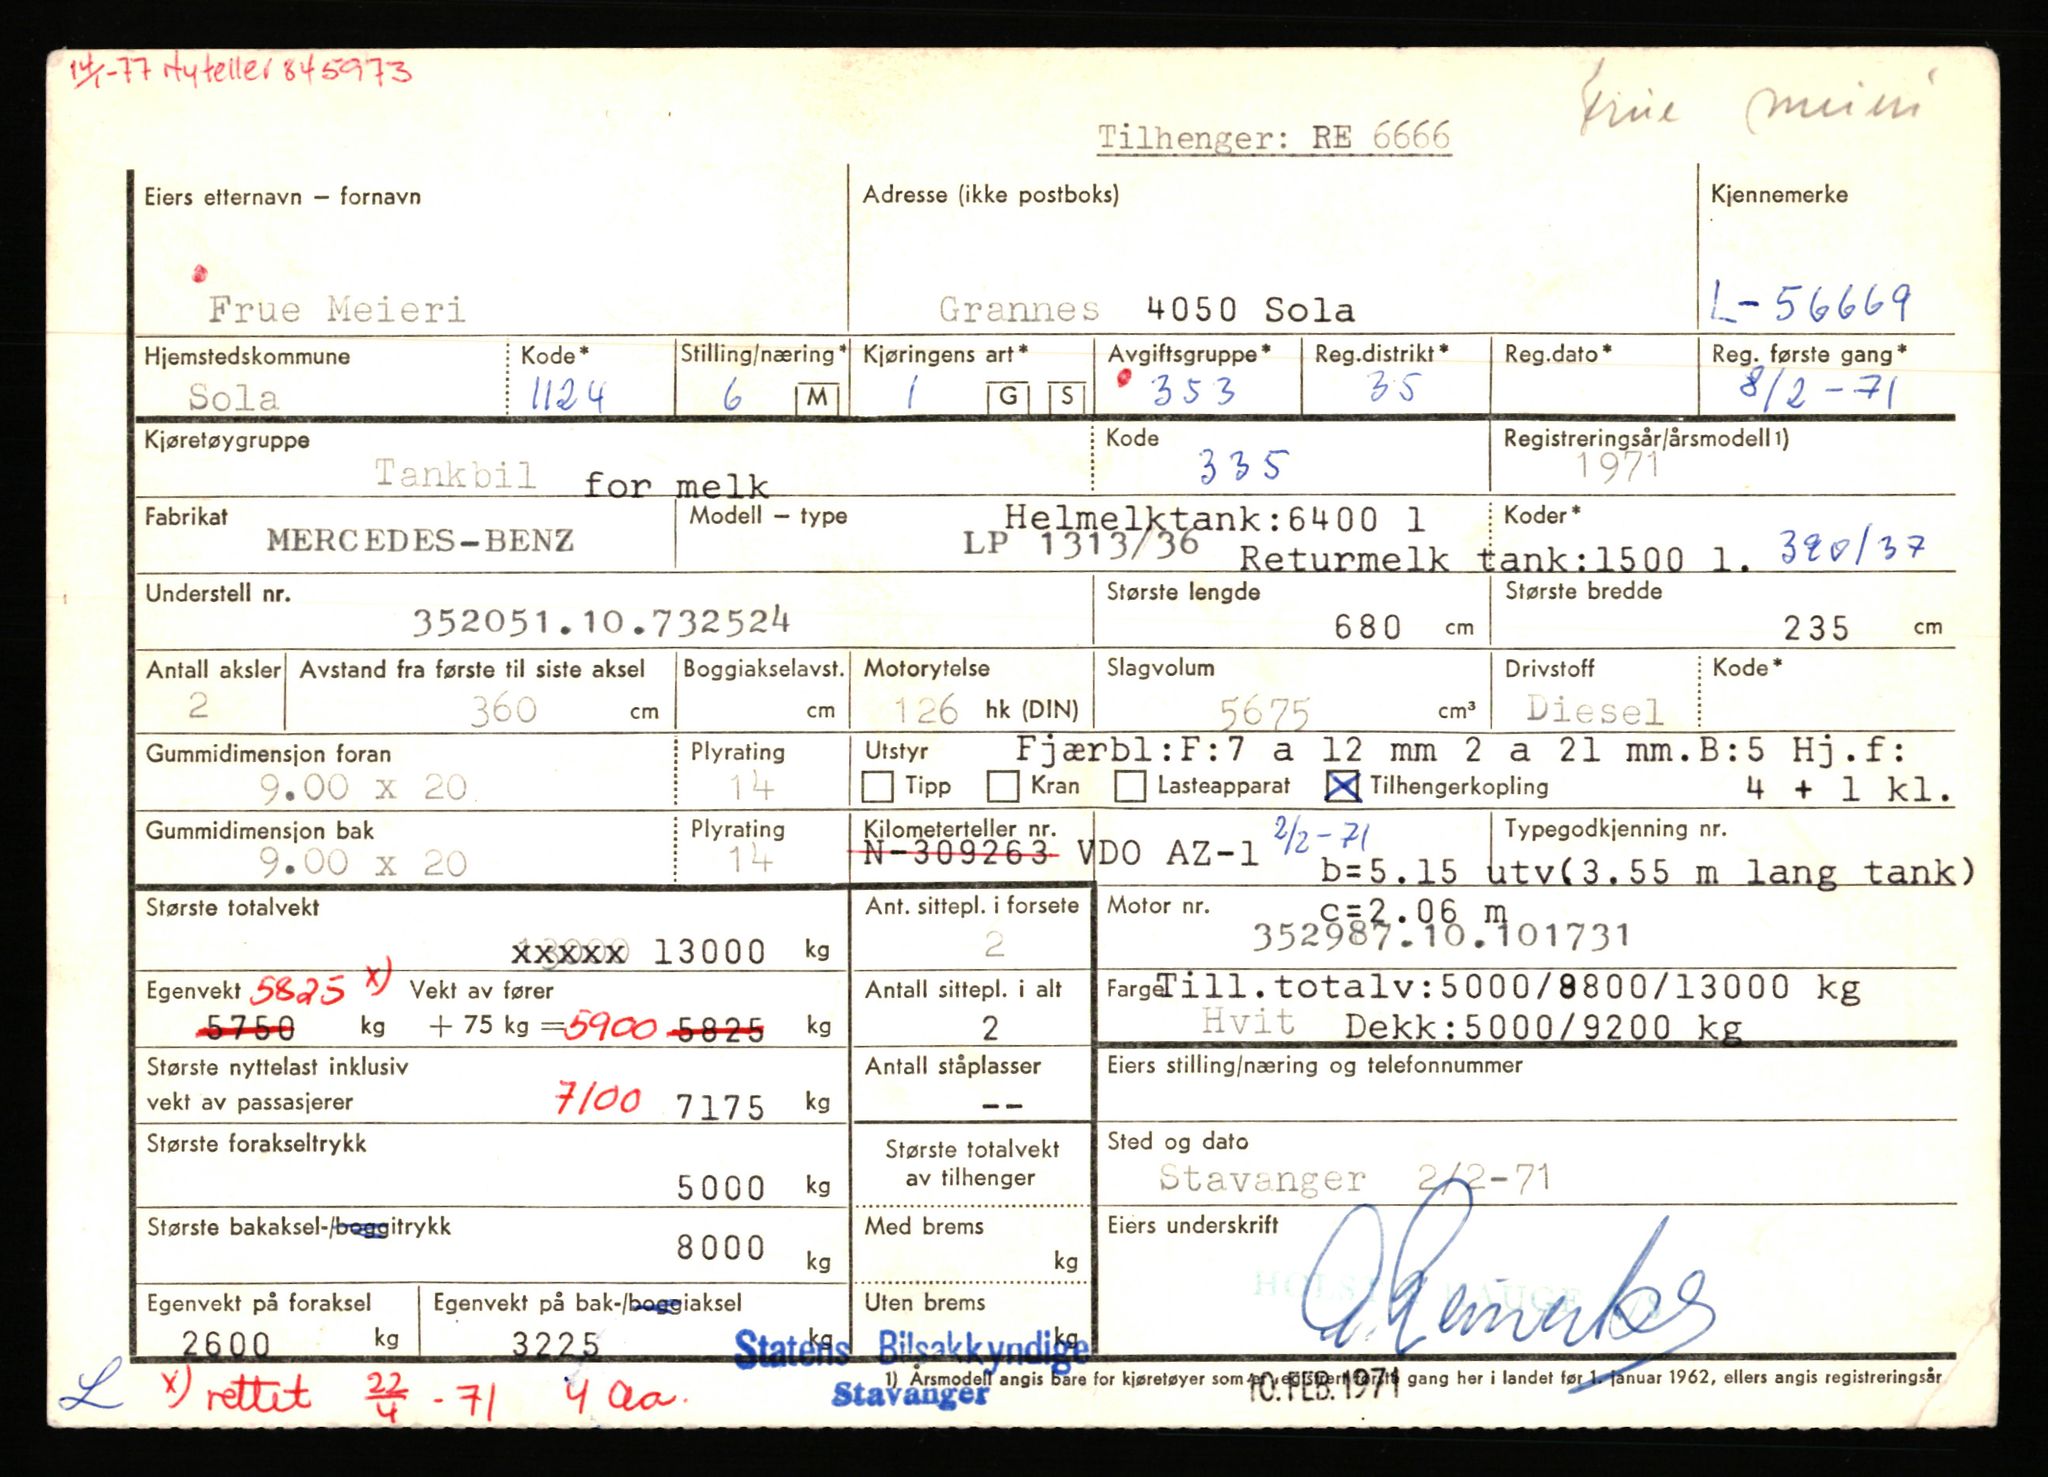 14/1-77 Ny teller 845973
Frue Meieri
Tilhenger: RE 6666
Eiers etternavn — fornavn Adresse (ikke postboks) Kjennemerke
Frue Meieri Grannes 4050 Sola L-56669
Hjemstedskommune Kode* Stilling/næring* Kjøringens art* Avgiftsgruppe* Reg.distrikt* Reg.dato* Reg. første gang*
Sola 1124 6 M 1 G S 353 35 8/2-71
Kjøretøygruppe Kode Registreringsår/årsmodell 1)
Tankbil for melk 335 1971
Fabrikat Modell — type Helmelktank:6400 l Koder*
MERCEDES-BENZ LP 1313/36 Returmelk tank:1500 l. 320/37
Understell nr. Største lengde Største bredde
352051.10.732524 680 cm 235 cm
Antall aksler Avstand fra første til siste aksel Boggiakselavst. Motorytelse Slagvolum Drivstoff Kode*
2 360 cm cm 126 hk (DIN) 5675 cm³ Diesel
Gummidimensjon foran Plyrating Utstyr Fjærbl:F:7 a 12 mm 2 a 21 mm.B:5 Hj.f:
9.00 x 20 14 Tipp Kran Lasteapparat Tilhengerkopling 4 + 1 kl.
Gummidimensjon bak Plyrating Kilometerteller nr. 2/2-71 Typegodkjenning nr.
9.00 x 20 14 N-309263 VDO AZ-1 b=5.15 utv(3.55 m lang tank)
Største totalvekt Ant. sittepl. i forsete Motor nr. c=2.06 m
13000 13000 kg 2 352987.10.101731
Egenvekt 5825 x) Vekt av fører Antall sittepl. i alt Farge Till.totalv:5000/8800/13000 kg
5750 kg + 75 kg = 5900 5825 kg 2 Hvit Dekk:5000/9200 kg
Største nyttelast inklusiv Antall ståplasser Eiers stilling/næring og telefonnummer
vekt av passasjerer 7100 7175 kg --
Største forakseltrykk Største totalvekt Sted og dato
5000 kg av tilhenger Stavanger 2/2-71
Største bakaksel-/boggitrykk Med brems Eiers underskrift
8000 kg kg
Egenvekt på foraksel Egenvekt på bak-/boggiaksel Uten brems
2600 kg 3225 kg kg
Statens Bilsakkyndige
Stavanger
1) Årsmodell angis bare for kjøretøyer som er registrert første gang her i landet før 1. januar 1962, ellers angis registreringsår
10. FEB. 1971
L x) rettet 22/4-71 4 Aa.